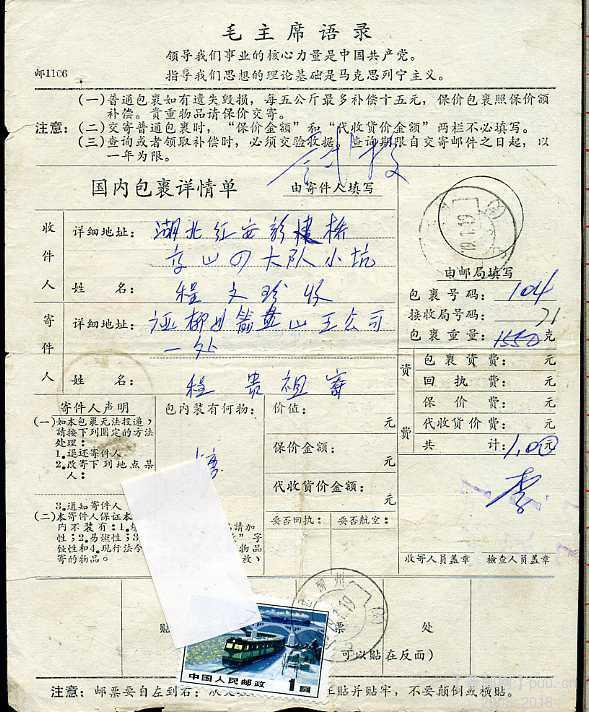 毛主席语录
领导我们事业的核心力量是中国共产党。
邮1106
指导我们思想的理论基础是马克思列宁主义。
注意:
(一)普通包裹如有遗失毁损,每五公斤最多补偿十五元,保价包裹照保价额
补偿。貴重物品请保价交寄。
(二)交寄普通包裹时,“保价金额”和“代收货价金额”两栏不必填写。
(三)查询或者领取补偿时,必须交验收据。查询期限自交寄邮件之日起,以
一年为限。
国内包裹详情单
由寄件人填写
收件人
详细地址: 湖北红安
山四大队小坑
姓名: 程文珍收
寄件人
详细地址: 柳州
山王公司
一处
姓名: 程贵祖寄
由邮局填写
包裹号码: 104
接收局号码: 21
包裹重量: 1550克
资费
包裹资费: 元
回执费: 元
保价费: 元
代收货价费: 元
共计: 1.00
李
收寄人员盖章 檢查人员蓋章
寄件人声明
(一)如本包裹无法投递,
請按下列固定的方法
处理:
1.退还寄件人
2.改寄下列地点某
人:
3.通知寄件人
(二)本寄件人保证本
内不装有:1.
性;2.易燃性;3.
蝕性和4.现行法令
寄的物品。
包内装有何物:
价值: 元
保价金额: 元
代收货价金额: 元
要否回执:
要否航空:
請加
”字
物品
放,
贴
票
处
可以贴在反面)
中国人民邮政
1圆
注意:邮票要自左到右:从
贴并贴牢,不要颠倒或横贴。